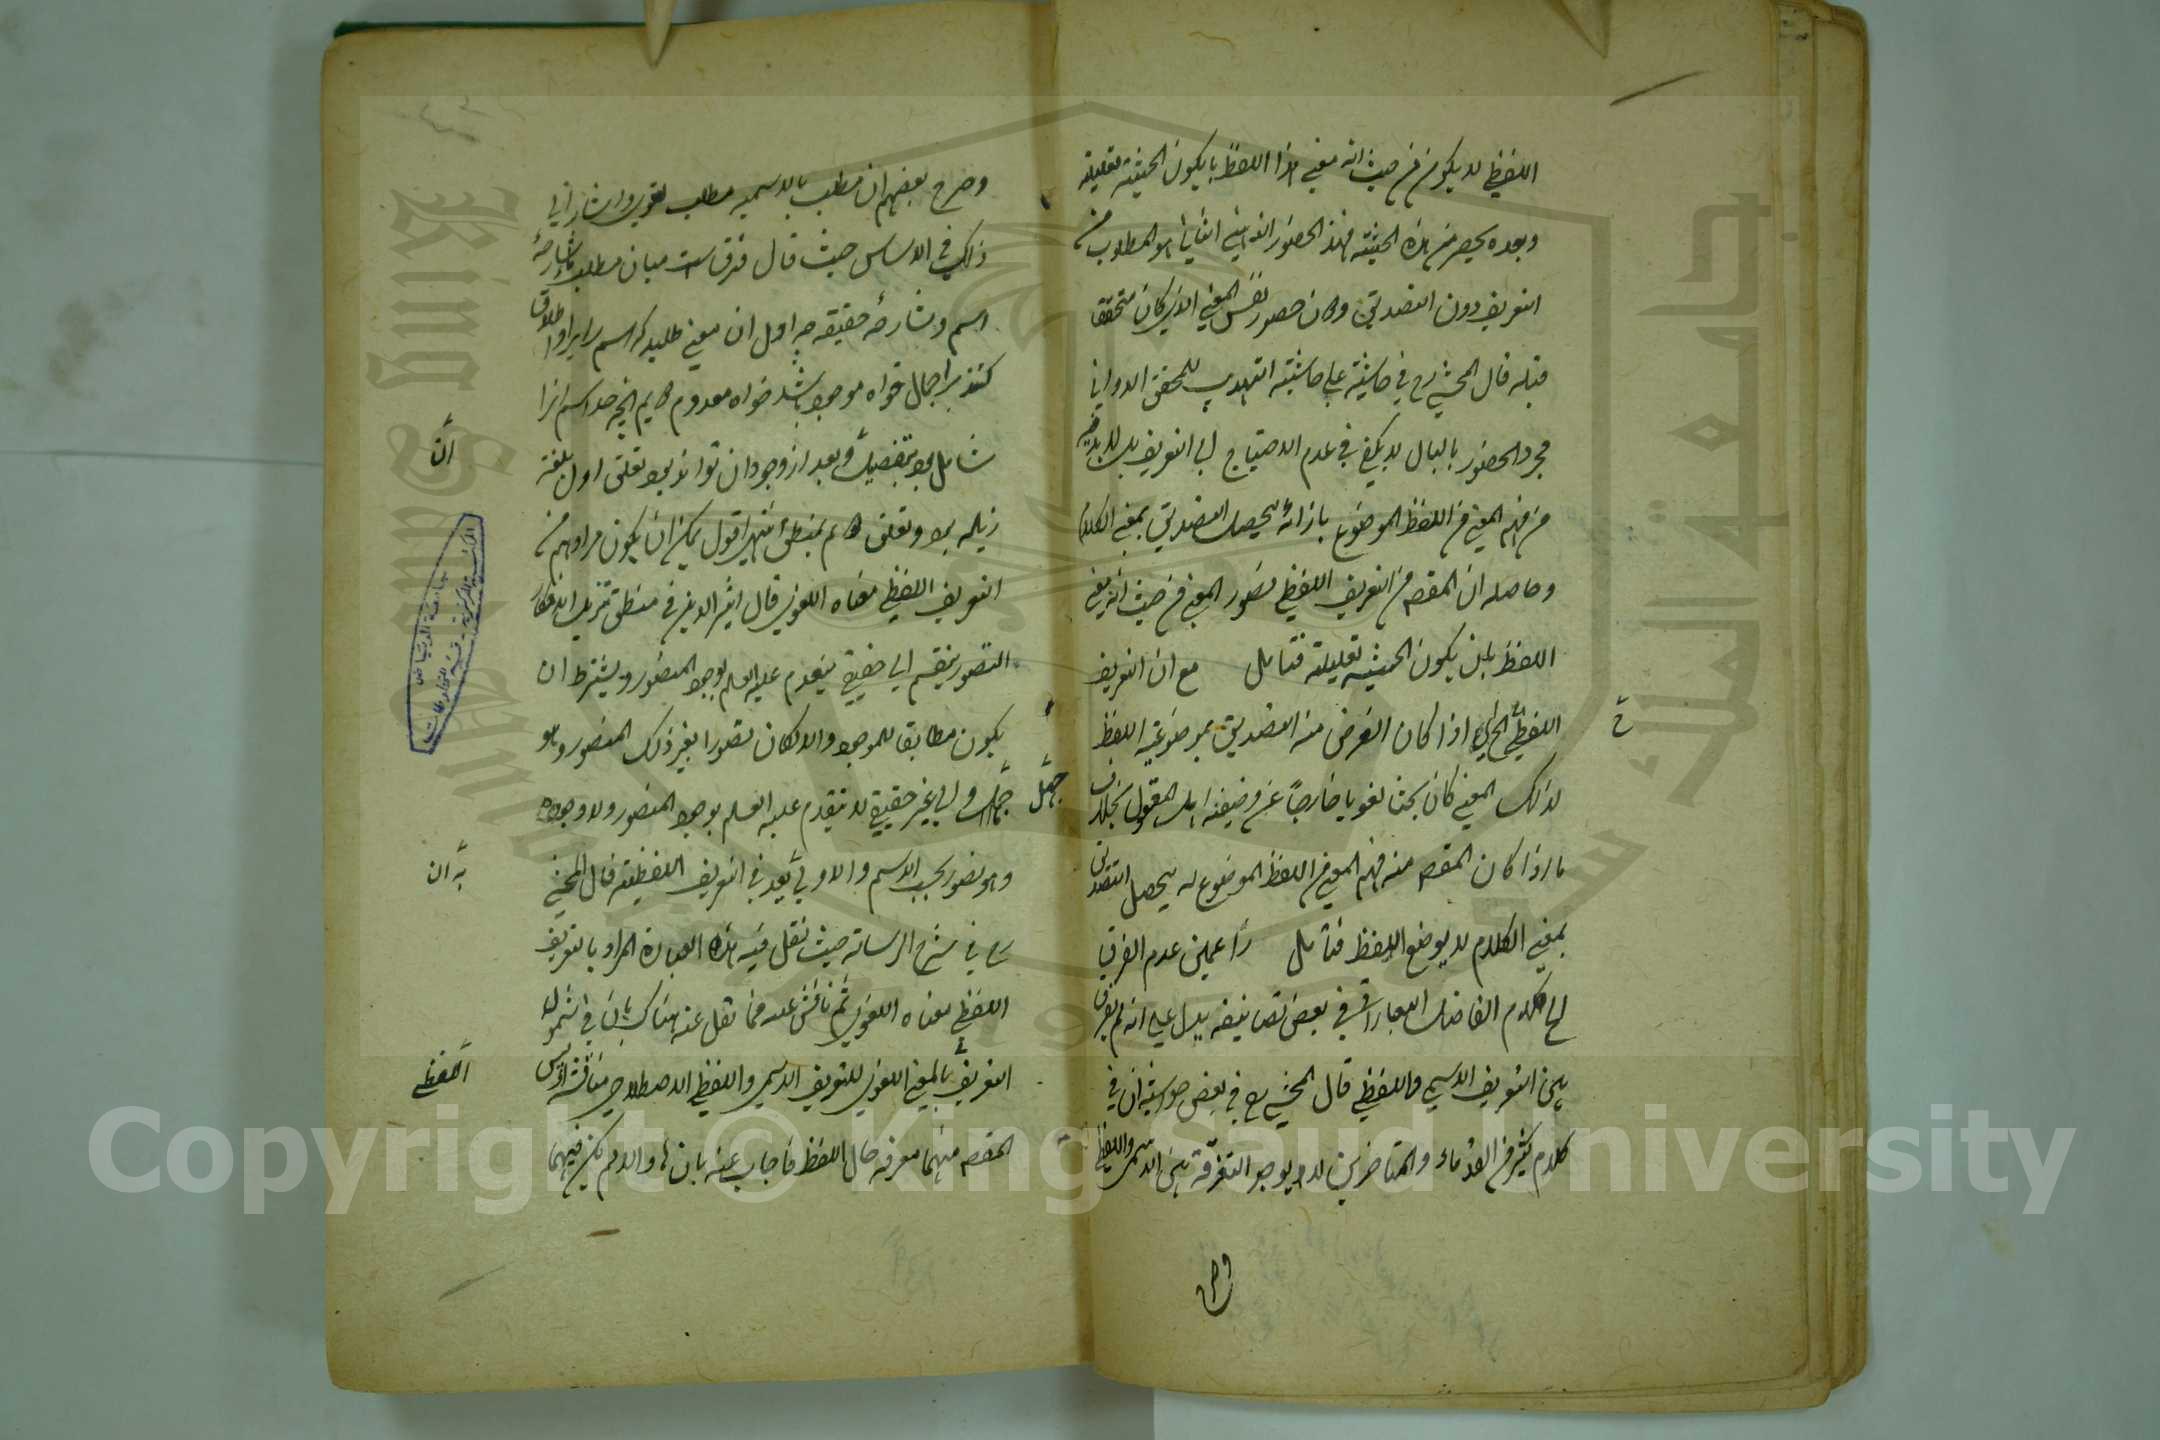 اللفظي لا يكون من حيث انه معنى هذا اللفظ بان يكون الحيثية تعليلية
وبعده يحصر من هذه الحيثية فهذا الحضور الثانيا هو المطلوب من
التعريف دون التصديق وكان حضور نفس المعنى الذي كان متحققا
قبله قال المحشي رح في حاشيته على حاشية التهذيب للمحقق الدواني
مجرد الحضور بالبال لا يكفي في عدم الاحتياج الى التعريف بل لا بد فيه
من فهم المعنى من اللفظ الموضوع بازائه ليحصل التصديق بمعنى الكلام
وحاصله ان المقصه من التعريف اللفظي تصور المعنى من حيث انه معنى
اللفظ بان يكون الحيثية تعليلية فتأمل مع ان التعريف
اللفظي الخ اي اذا كان الغرض منه التصديق بموضوعية اللفظ
لذلك المعنى كان بحثا لغويا خارجا عن وضيفة اهل المعقول بخلاف
ما اذا كان المقصه منه فهم المعنى من اللفظ الموضوع له ليحصل التصديق
بمعنى الكلام لا بوضع اللفظ فتأمل زاعمين عدم الفرق
الخ كلام الفاضل في بعض تصانيفه يدل على انه لم يفرق
بين التعريف الاسمي واللفظي قال المحشي رح في بعض حواشيه ان في
كلام كثير من القدماء والمتأخرين لا يوجد التفرقة بين الاسمي واللفظي
وصرح
ح
وصرح بعضهم ان مطلب ما الاسمية مطلب لغوي واشار الى
ذلك في الاساس حيث قال فرق است ميان مطلب ما شارحة
اسم وشارحة حقيقه چه اول ان معنى طلبد كه اسم را براو اطلاق
كنند براجمال خواه موجود باشد خواه معدوم
شامل بود بتفصيل وبعد از وجود ان تواند بود وتعلق اول بلغة
بود وتعلق دويم بمنطق انتهى اقول يمكن ان يكون مرادهم من
التعريف اللفظي معناه اللغوي قال اثير الدين في منطق تنزيل الافكار
التصور ينقسم الى حقيقي يتقدم عليه العلم بوجود المتصور ويشترط ان
يكون مطابقا للموجود والا لكان تصورا لغير ذلك المتصور وهو
جهل والى غير حقيقي لا يتقدم عليه العلم بوجود المتصور ولا وجوده
وهو تصور بحسب الاسم والاولى يعد في التعريف اللفظية قال المحشي
رح في شرح الرسالة حيث نقل فيه هذه العبارة المراد بالتعريف
اللفظي معناه اللغوي ثم ناقش عنه فما نقل عنه هناك بان في شمول
التعريف بالمعنى اللغوي للتعريف الاسمي واللفظي الاصطلاحي مناقشة اذ ليس
المقصه منهما معرفة حال اللفظ فاجاب عنه بان وان لم يكن فيهما
جهل
ان
به ان
اللفظي
Copyright © King Saud University
King Saud University
جامعة الملك سعود
1957